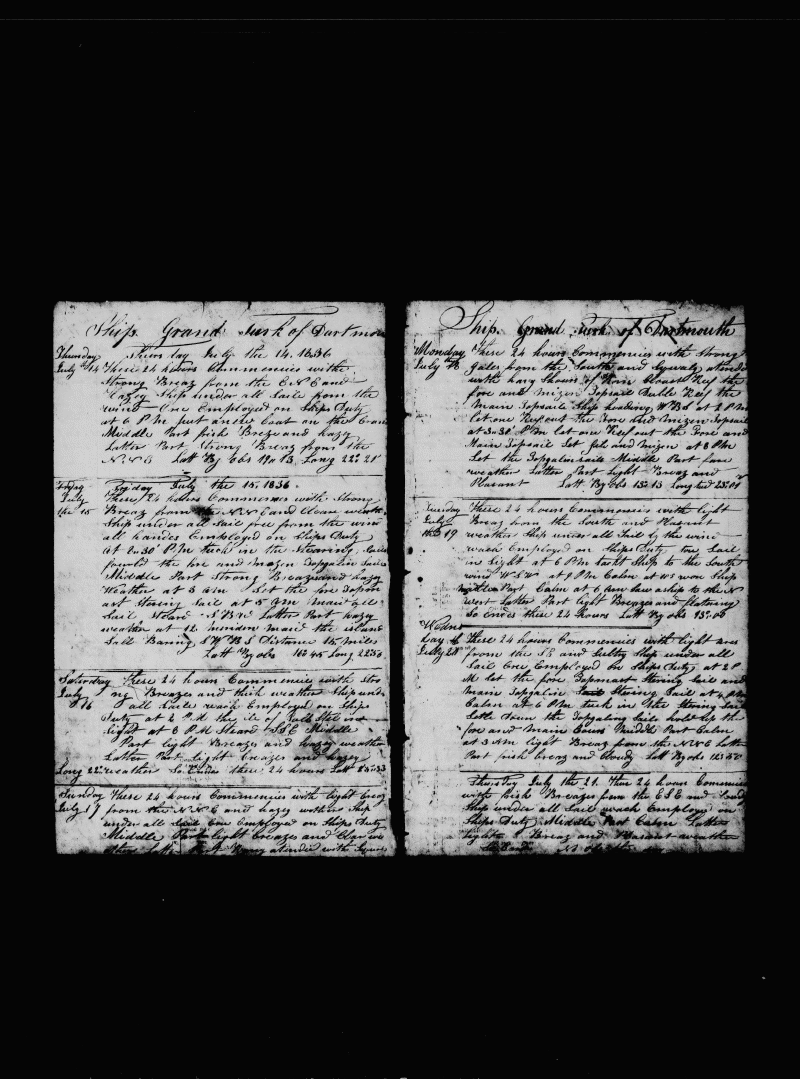 Ship. Grand Turk of Dartmou
Thursday Thurs day July the 14. 1836
July 14 These 24 hours Commencies with
Strong Breaz from the ENE and
Hazey Ship under all Sail from the
wind One Employed on Ships Duty
at 6 P M put a new boat on the Cran
Middle Part frish Breze and hazy
Latter Part Strong Breaz from the
NNE Latt By obs 19" 13 Long 22" 21'
Friday Fryday July the 15, 1836.
July These 24 hours Commences with Strong
the 15 Breaz from the NNE and Cleare weath
Ship under all Sail free from the wind
all handes Employed on Ships Duty
At 2"30' P M tuck in the Stearing Sailes
fourld the fore and mizen Topgalin Sails
Middle Part Strong Breaz and hazy
Weather at 3 AM Set the fore Topm
ast Stering Sail at 5 AM maid all
Sail Steard S B W Latter Part hazy
weather at 12 meriden maid the island
Sall Baring S W B S Distance 15 miles
Latt By obs 16" 45 Long 22"56
Saturday These 24 hours Commencies with Stro
July ng Breazes and thick weather Ship unde
16 all Saile wach Employed on Ships
Duty at 2 P.M the ile of Sall
light at 8 P.M Steard SSE Middle
Part light Breazes and hazey weather
Latter Part light breazes and hazey
Long 22" weather So Endes these 24 hours Latt 33
Sunday These 24 hours Commencies with light breaz
July 17 from the NNE and hazy wether Ship
under all Sail one Employed on Ships Duty
Middle Part light breazes and Clar we
Latter Part atended with
Ship. Grand Turk of Dartmouth
Monday These 24 hours Commencies with Strong
July 18 Gales from the South and Squaly atended
with havy Shours of Rain Clouse Reef the
fore and mizen Topsail Dulle Reef the
Main Topsail Ship heading W B S at 2 P M
let one Reef out the Fore and Mizen Topsail
at 3"30' P M let one Reef out the Fore and
Main Topsail Set Jeb and mizen at 8 P M
Set the Topgalin sails Middle Part fare
weather Latter Part Light Breaz and
Plesant Latt By obs 15" 13 Longtud 23"01
Tuesday These 24 hours Commencies with light
July Breaz from the South and Plesant
the 19 weather Ship under all Sail by the wind
wach Employed on Ships Duty tow Sail
in Sight at 6 P M tackt Ship to the South
wind W S W at 9 P M Calm at
Middle Part Calm at 6 AM saw a ship to the N
west Latter Part light Breazes and
So Endes these 24 Hours Latt By obs 13"00
Wedns
day These 24 hours Commencies with light ares
July 20 from the SE and Sultry Ship under all
Sail One Employed on Ships Duty at 2 P
M Set the fore Topmast Stering Sail and
main Topgalin Stering Sail at 4 P M
Calm at 6 P M tuck in the Stering Sails
the Topgaling Sails hold up the
fore and Main Cours Middle Part Calm
at 3 AM light Breaz from the NNE Latter
Part frish breaz and Cloudy Latt By obs 12" 50
Thursday July the 21. These 24 hours Commencies
with frish Breazes from the ESE and Cloudy
Ship under all Sail wach Employed on
Ships Duty Middle Part Calm Latter
lighte Breaz and Plesant weather